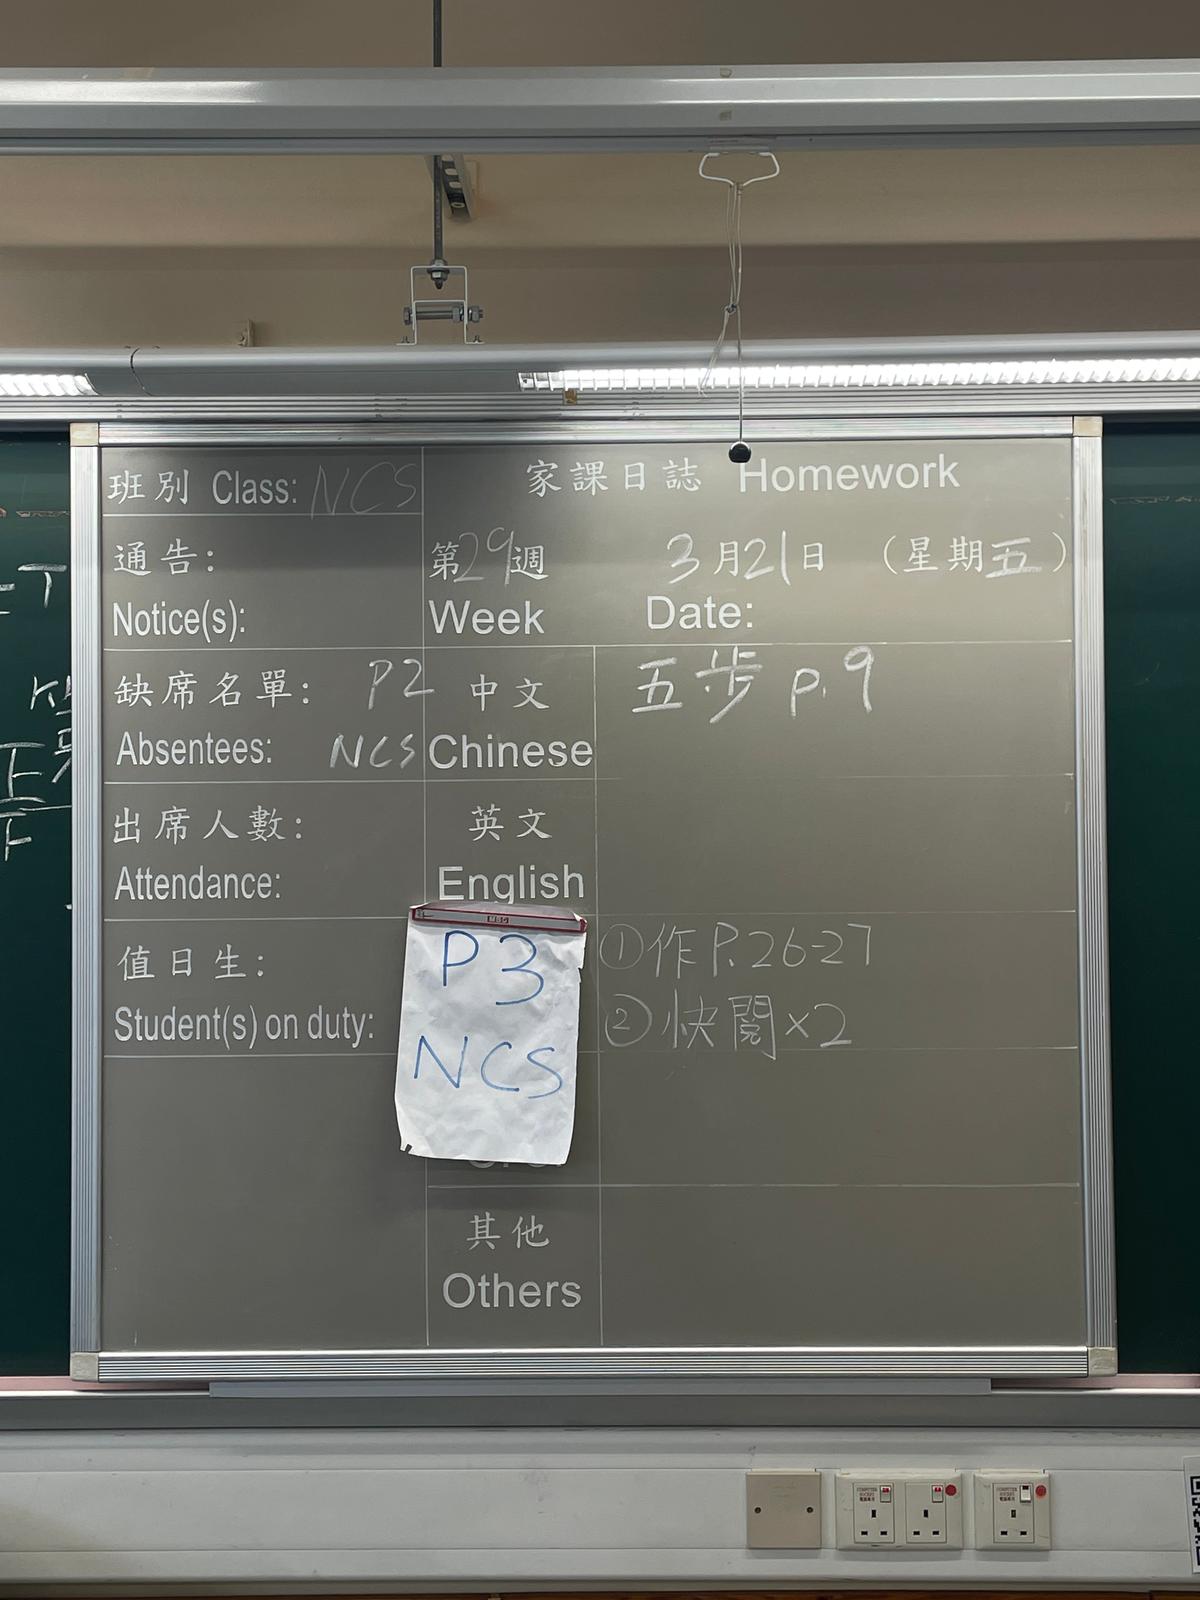 班別 Class: NCS
家課日誌 Homework
通告:
Notice(s):
第29週 3月21日 (星期五)
Week Date:
缺席名單: P2
Absentees: NCS
中文
Chinese
五步 p.9
出席人數:
Attendance:
英文
English
值日生:
Student(s) on duty:
P3
NCS
①作P.26-27
②快閱×2
其他
Others